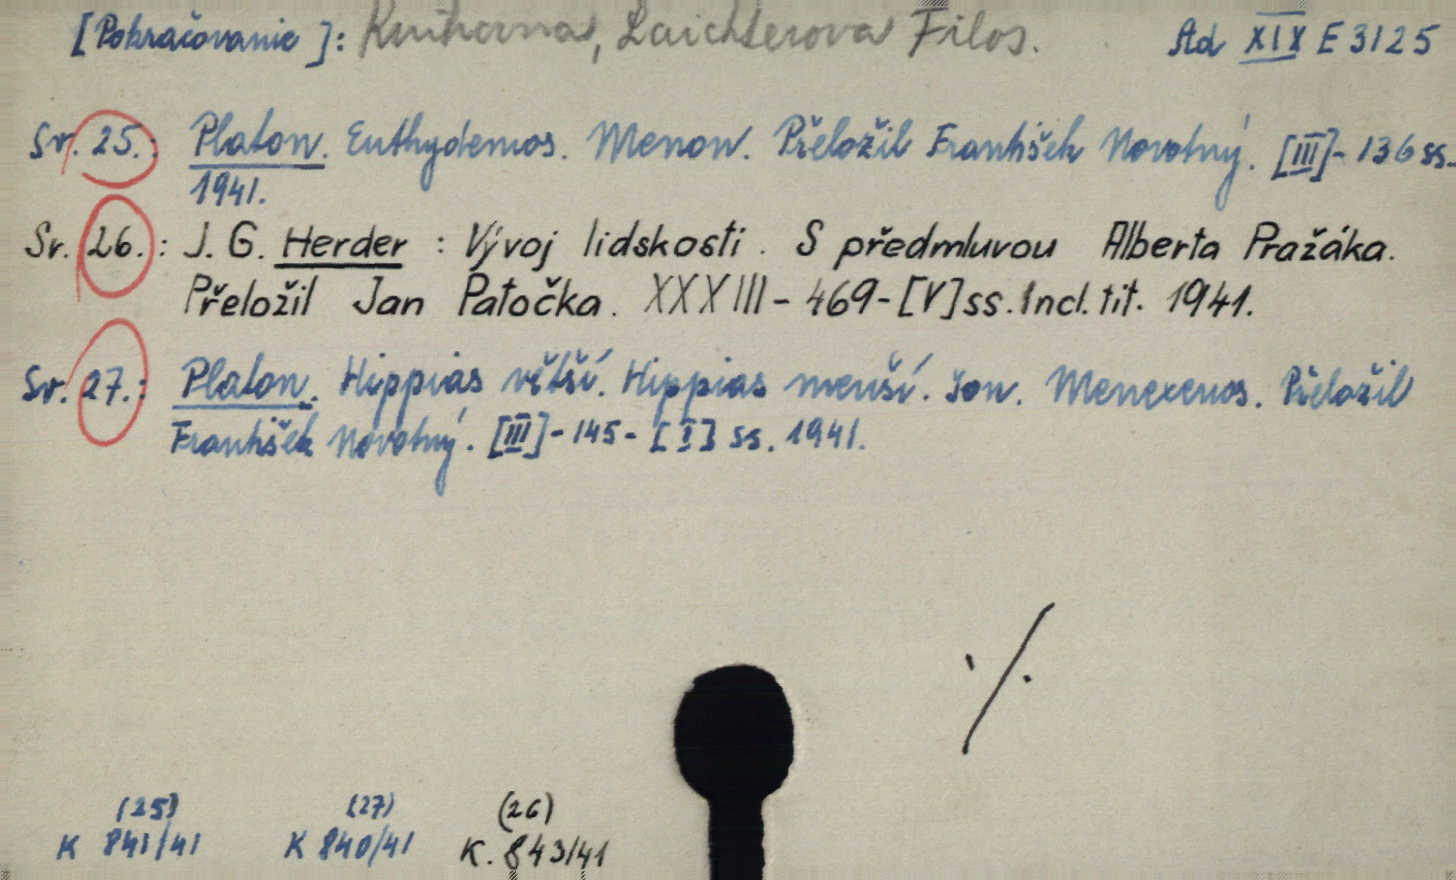 [Pokračovanie]: Knihovna, Laichterova Filos. Ad XIX E 3125
Sv. 25.: Platon. Euthydemos. Menon. Přeložil František Novotný. [III]- 136 ss.-
1941.
Sv. 26.: J. G. Herder : Vývoj lidskosti. S předmluvou Alberta Pražáka.
Přeložil Jan Patočka. XXXIII - 469 - [V] ss. Incl. tit. 1941.
Sv. 27.: Platon. Hippias větší. Hippias menší. Ion. Menexenos. Přeložil
František Novotný. [III] - 145 - [I] ss. 1941.
./.
(25) (27) (26)
K 841/41 K 840/41 K. 843/41